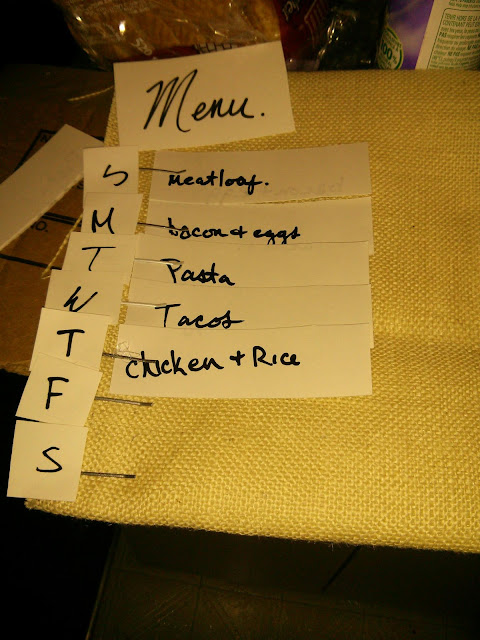 Menu.
S meatloaf.
M bacon + eggs
T Pasta
W Tacos
T chicken + Rice
F
S